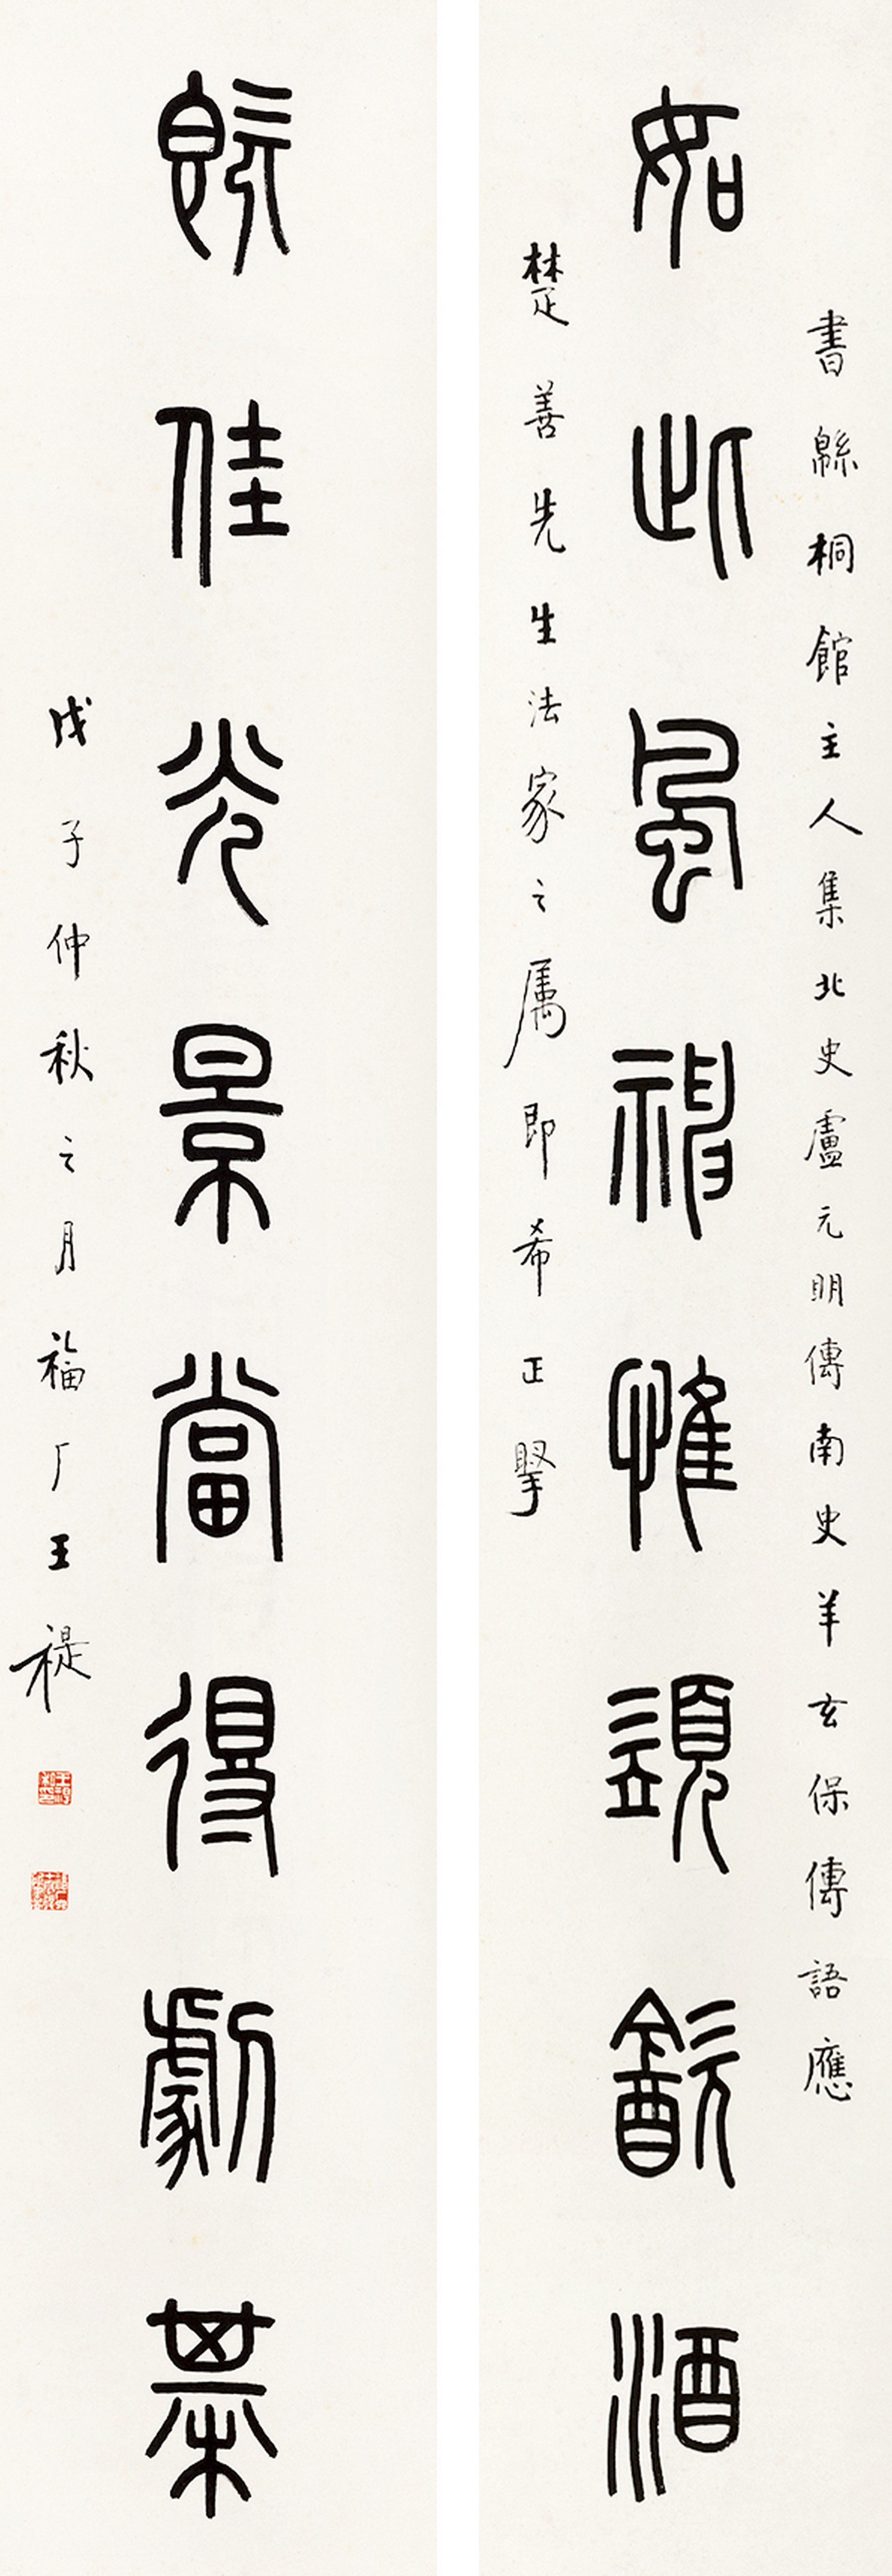 書緜桐館主人集北史盧元明傳南史羊玄保傳語應
如此風神惟須㱃酒
楚善先生法家之属即希正掔
既佳光景當得劇棊
戊子仲秋之月福厂王禔